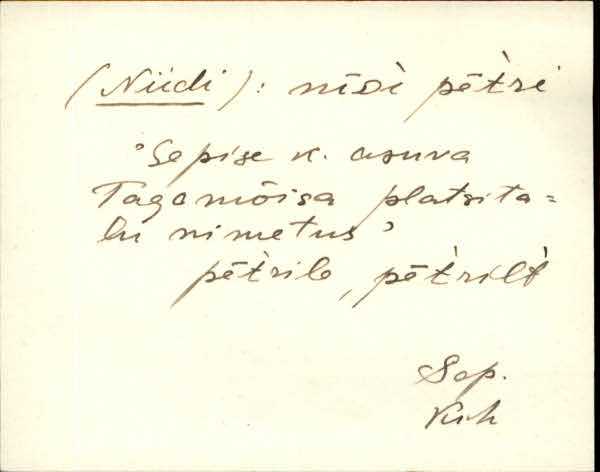 (Niidi): nīᴅi pētri
'Sepise k. asuva
Tagamõisa platsita=
lu nimetus'
pētrile, pētrilt
Sep.
Krk